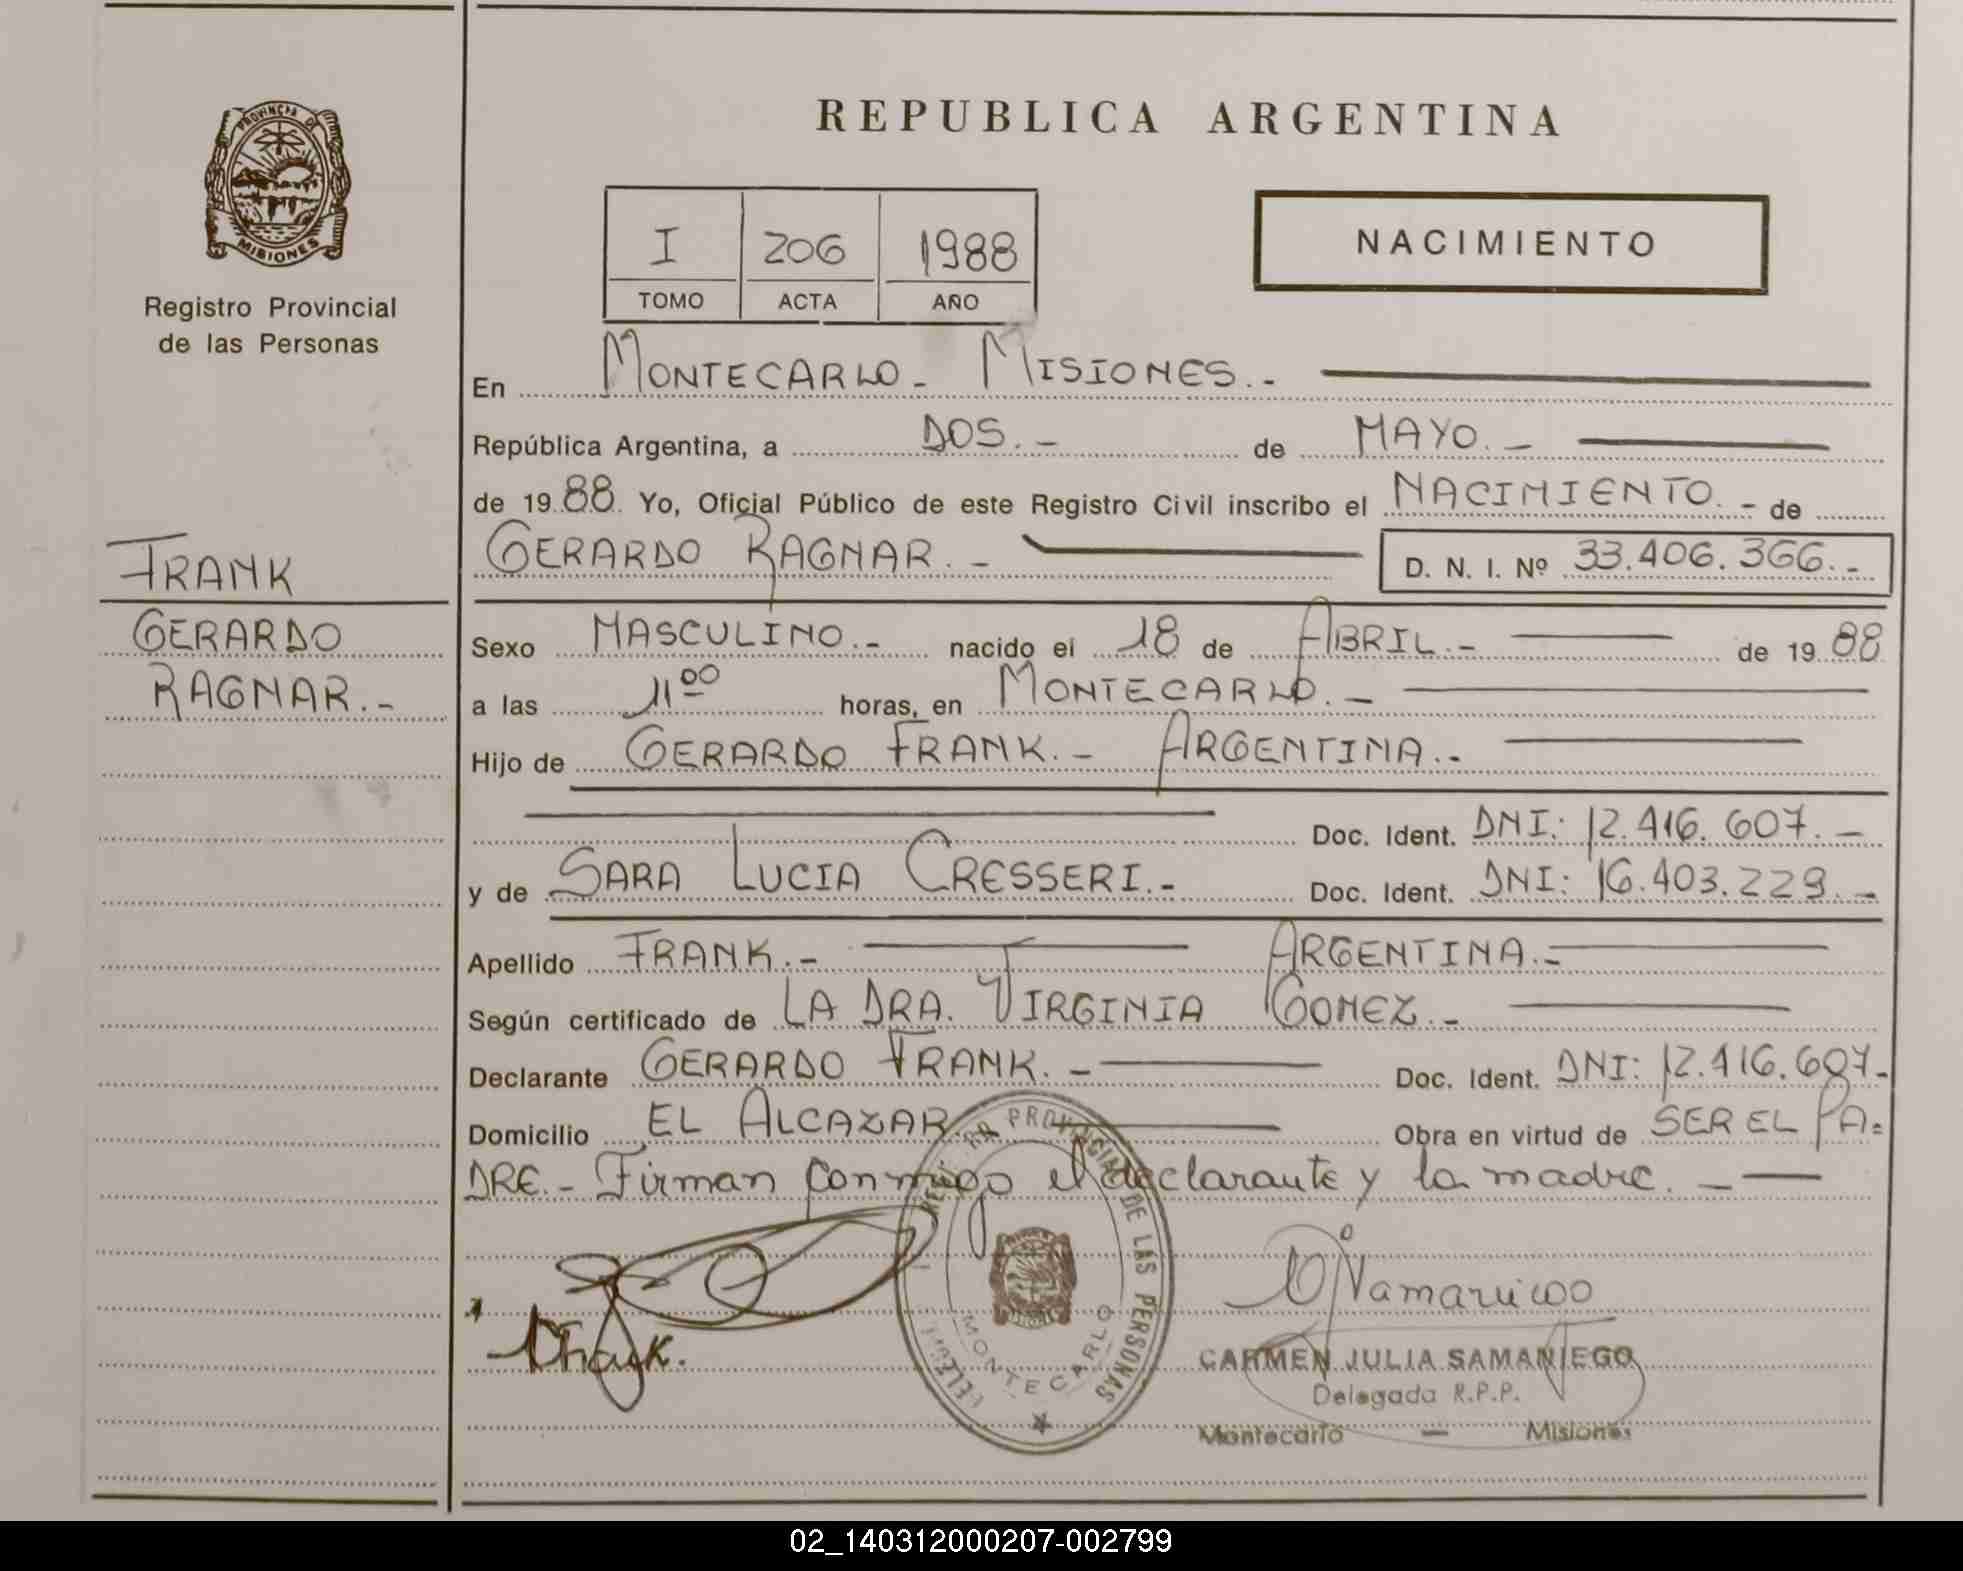 PROVINCIA DE
MISIONES
Registro Provincial
de las Personas
FRANK
GERARDO
RAGNAR.-
REPUBLICA ARGENTINA
I 206 1988
TOMO ACTA AÑO
NACIMIENTO
En MONTECARLO - MISIONES.-
República Argentina, a DOS.- de MAYO.-
de 1988 Yo, Oficial Público de este Registro Civil inscribo el NACIMIENTO.- de
GERARDO RAGNAR.- D. N. I. Nº 33.406.366.-
Sexo MASCULINO.- nacido el 18 de ABRIL.- de 1988
a las 11 00 horas, en MONTECARLO.-
Hijo de GERARDO FRANK.- ARGENTINA.-
Doc. Ident. DNI: 12.416.607.-
y de SARA LUCIA CRESSERI.- Doc. Ident. DNI: 16.403.229.-
Apellido FRANK.- ARGENTINA.-
Según certificado de LA DRA. VIRGINIA GOMEZ.-
Declarante GERARDO FRANK.- Doc. Ident. DNI: 12.416.607-
Domicilio EL ALCAZAR Obra en virtud de SER EL PA=
DRE.- Firman conmigo el declarante y la madre.-
PROVINCIAL DE LAS PERSONAS
MONTECARLO
CARMEN JULIA SAMANIEGO
Delegada R.P.P.
Montecarlo - Misiones
02_140312000207-002799